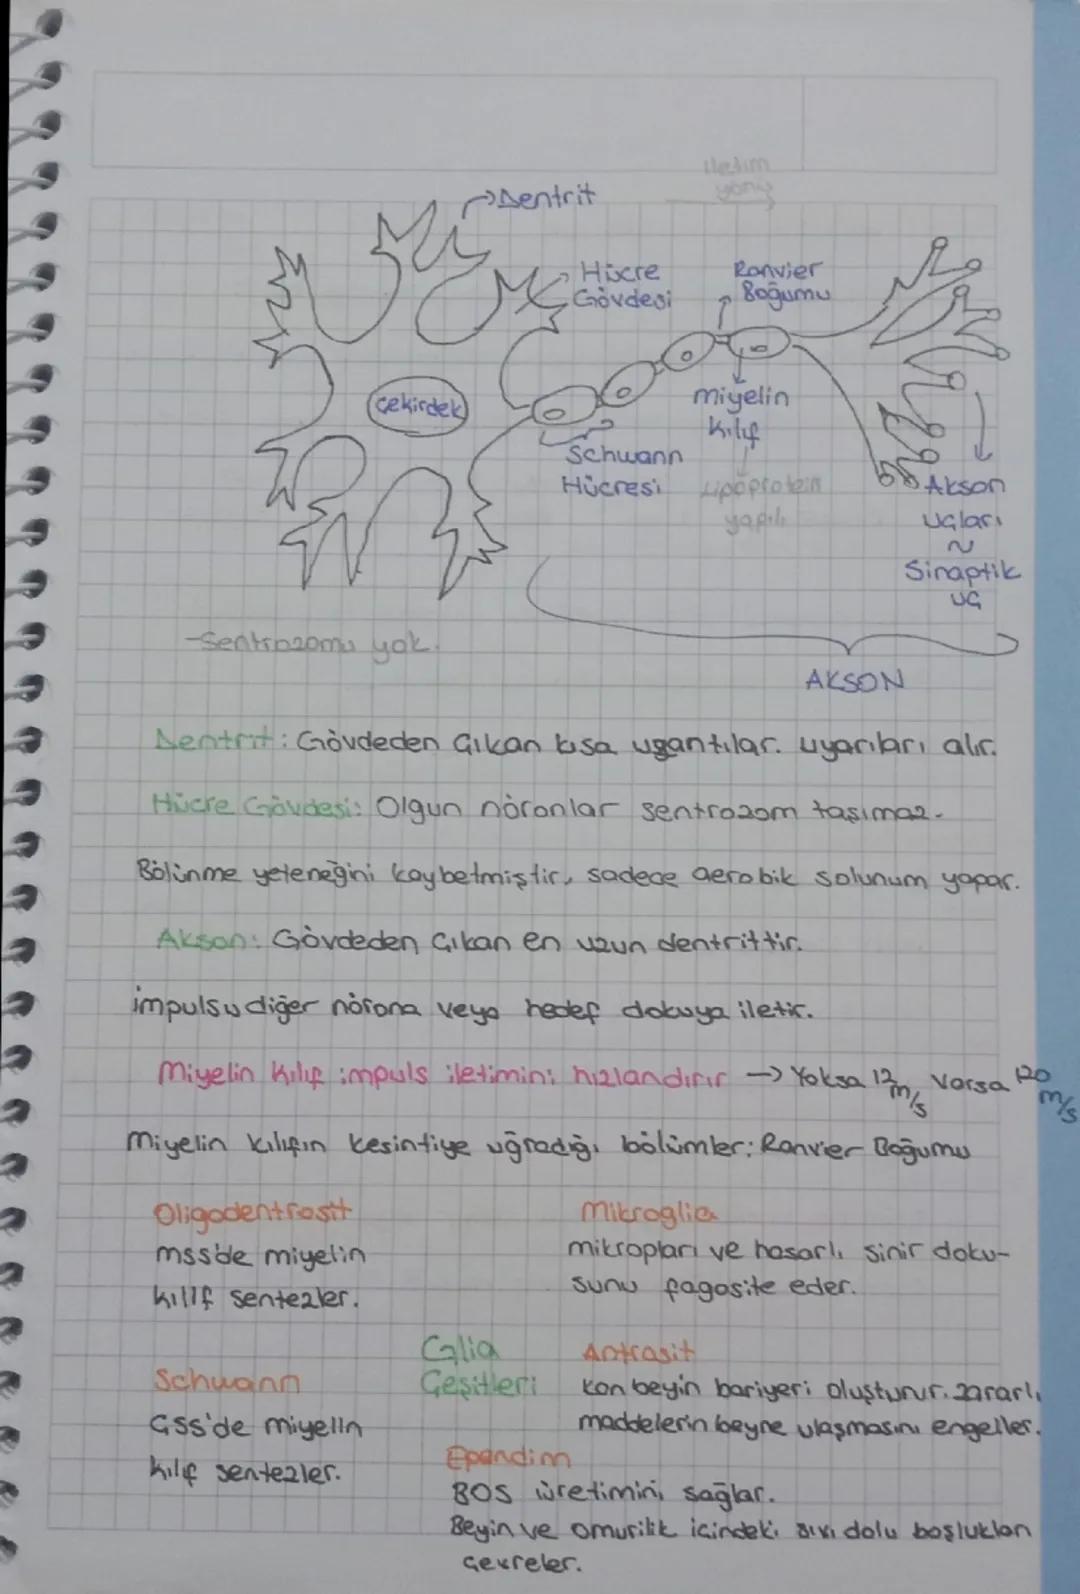 iletim
yönü
Dentrit
Hücre
Gövdesi
Ranvier
Boğumu
Çekirdek
miyelin
kılıf
Schwann
Hücresi
Lipoprotein
yapılı
Akson
uçları
~
Sinaptik
uç
-Sentrozomu yok.
AKSON
Dentrit: Gövdeden çıkan kısa uzantılar. uyarıları alır.
Hücre Gövdesi: Olgun nöronlar sentrozom taşımaz.
Bölünme yeteneğini kaybetmiştir, sadece aerobik solunum yapar.
Akson: Gövdeden çıkan en uzun dentrittir.
impulsu diğer nörona veya hedef dokuya iletir.
Miyelin kılıf impuls iletimini hızlandırır → Yoksa 12 m/s Varsa 120 m/s
Miyelin kılıfın kesintiye uğradığı bölümler: Ranvier Boğumu
Oligodentrosit
mss'de miyelin
kılıf sentezler.
Mikroglia
mikropları ve hasarlı sinir doku-
sunu fagosite eder.
Glia
Çeşitleri
Schwann
Çss'de miyelin
kılıf sentezler.
Antrasit
kan beyin bariyeri oluşturur. zararlı
maddelerin beyne ulaşmasını engeller.
Epandim
BOS üretimini sağlar.
Beyin ve omurilik içindeki sıvı dolu boşlukları
çevreler.